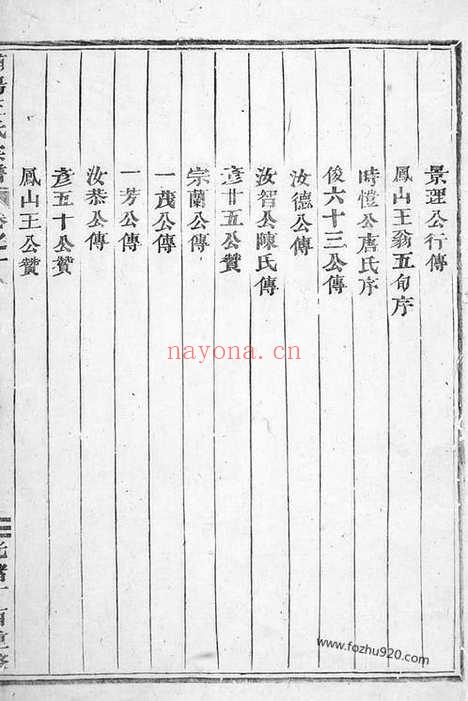 景理公行傳
鳳山王翁五旬序
時愷公唐氏序
俊六十三公傳
汝德公傳
汝智公陳氏傳
彦廿五公贊
宗蘭公傳
一茂公傳
一芳公傳
汝恭公傳
彦五十公贊
鳳山王公贊
nayona.cn
www.fozhu920.com